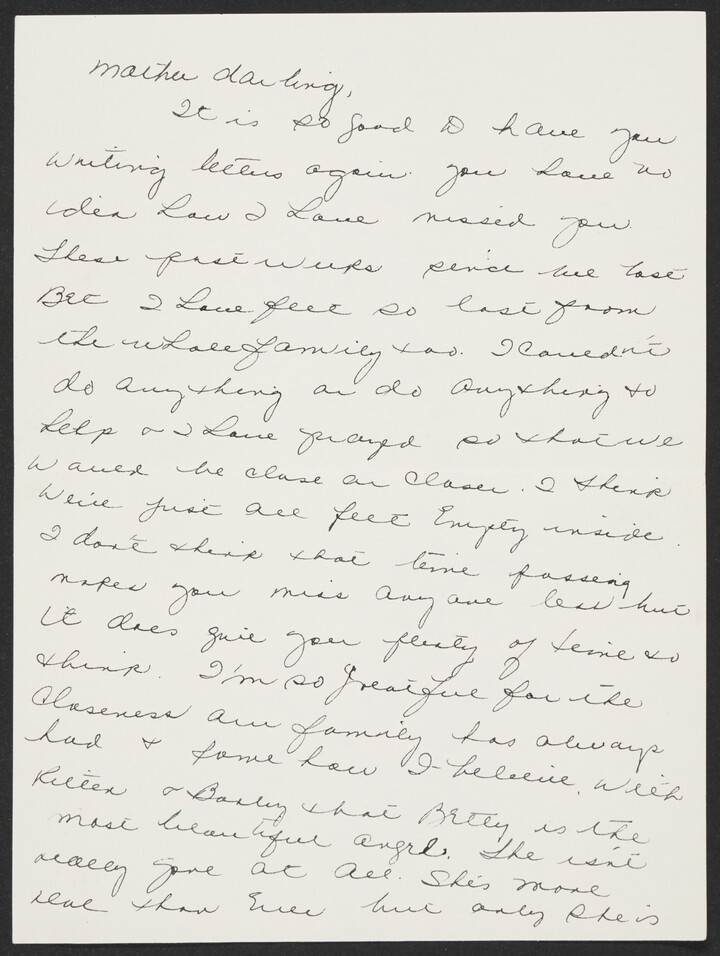 Mother darling,
It is so good to have you
writing letters again. you have no
idea how I have missed you.
These past weeks since we lost
Bet I have felt so lost from
the whole family too. I couldn't
do anything or do anything to
help & I have prayed so that we
would be close or closer. I think
We've just all felt Empty inside.
I don't think that time passing
makes you miss anyone less but
it does give you plenty of time to
think. I'm so greatful for the
closeness our family has always
had & some how I believe, with
Kitten & that Betty is the
most beautiful angel. She isn't
really gone at all. She's more
real than Ever but only she is